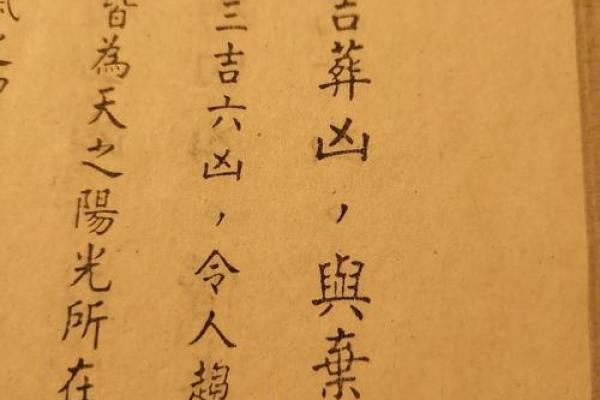 吉葬凶，與棄
三吉六凶，令人趨
皆為天之陽光所在
氣之